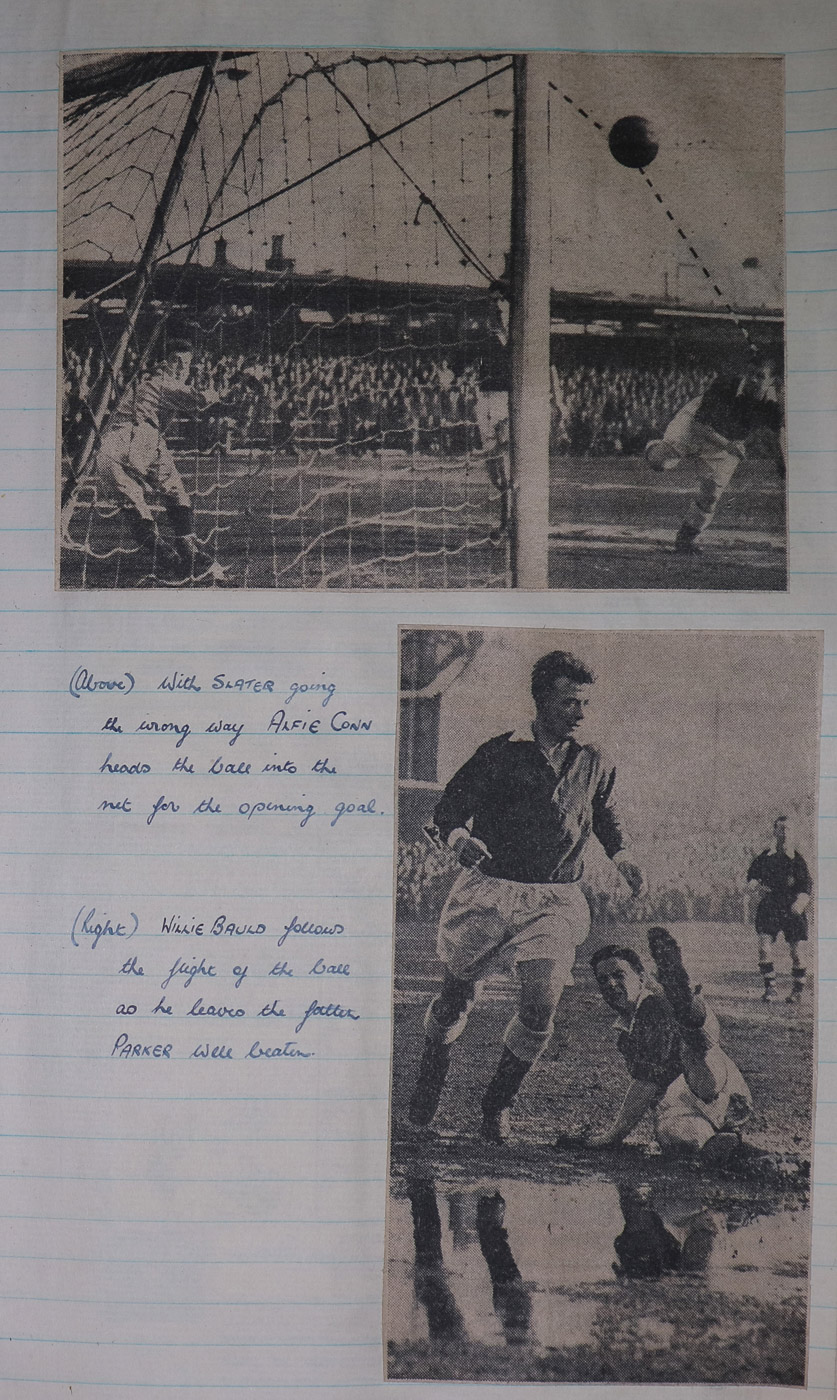 (Above) With SLATER going
the wrong way ALFIE CONN
heads the ball into the
net for the opening goal.
(Right) WILLIE BAULD follows
the flight of the ball
as he leaves the fallen
PARKER well beaten.